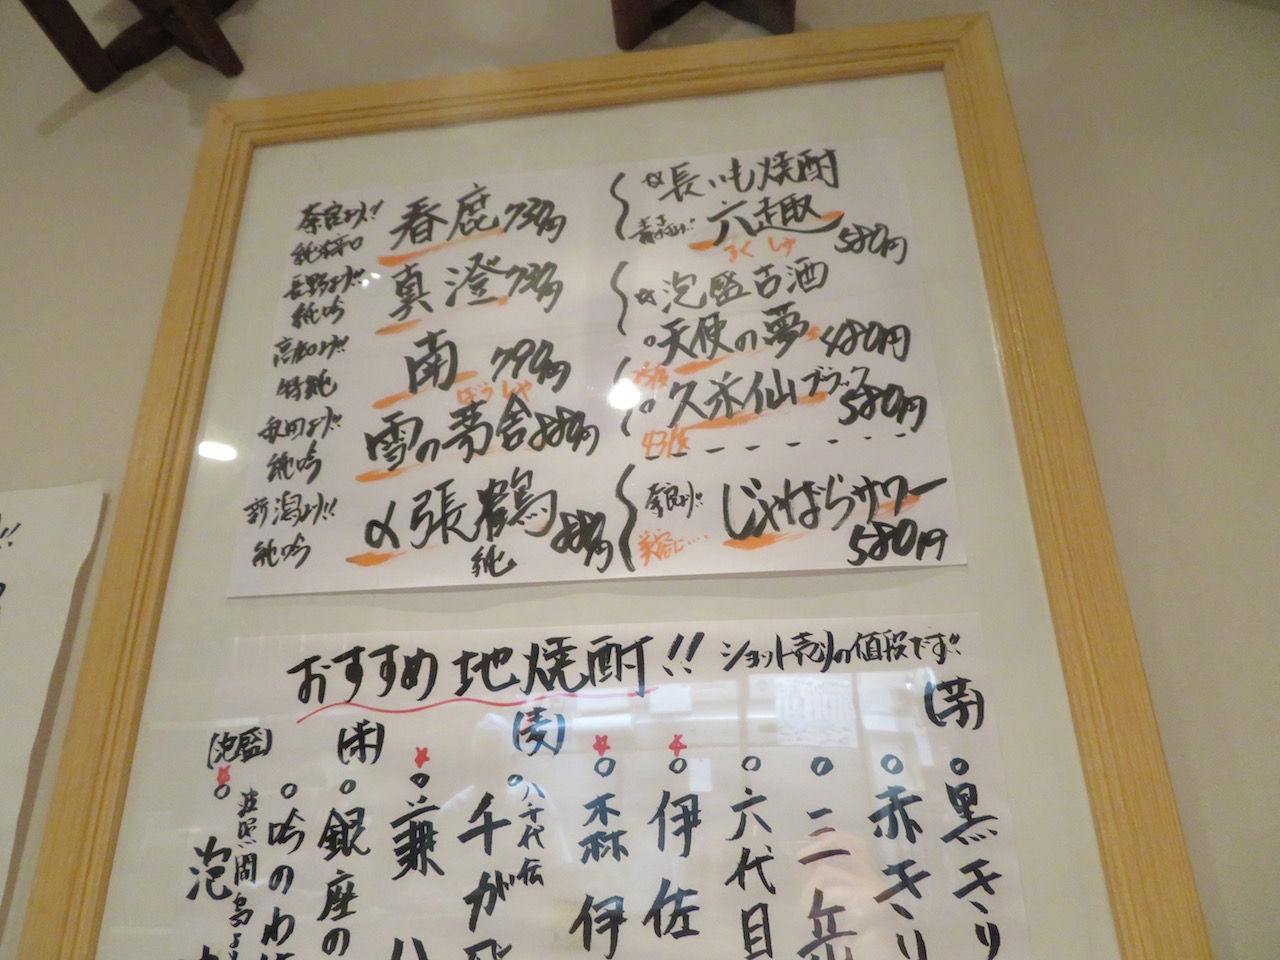 奈良より!!
純米辛口
春鹿 730円
長野より!!
純吟
真澄 730円
高知より!!
特純
南 790円
秋田より!!
純吟
ぼうしゃ
雪の茅舎 880円
新潟より!!
純吟
〆張鶴
純
☆長いも焼酎
青森より!!
六趣 580円
ろくしゅ
☆泡盛古酒
○天使の夢 480円
25度
○久米仙ブラック 580円
43度
奈良より!!
美容に…
じゃばらサワー
580円
おすすめ地焼酎!! ショット売りの値段です!!
(芋)
○黒きり
○赤きり
○二
○六代目
○伊佐
○森伊
(麦)
○八千代伝
千が
○兼八
(米)
○銀座の
○吟の
(泡盛)
○泡